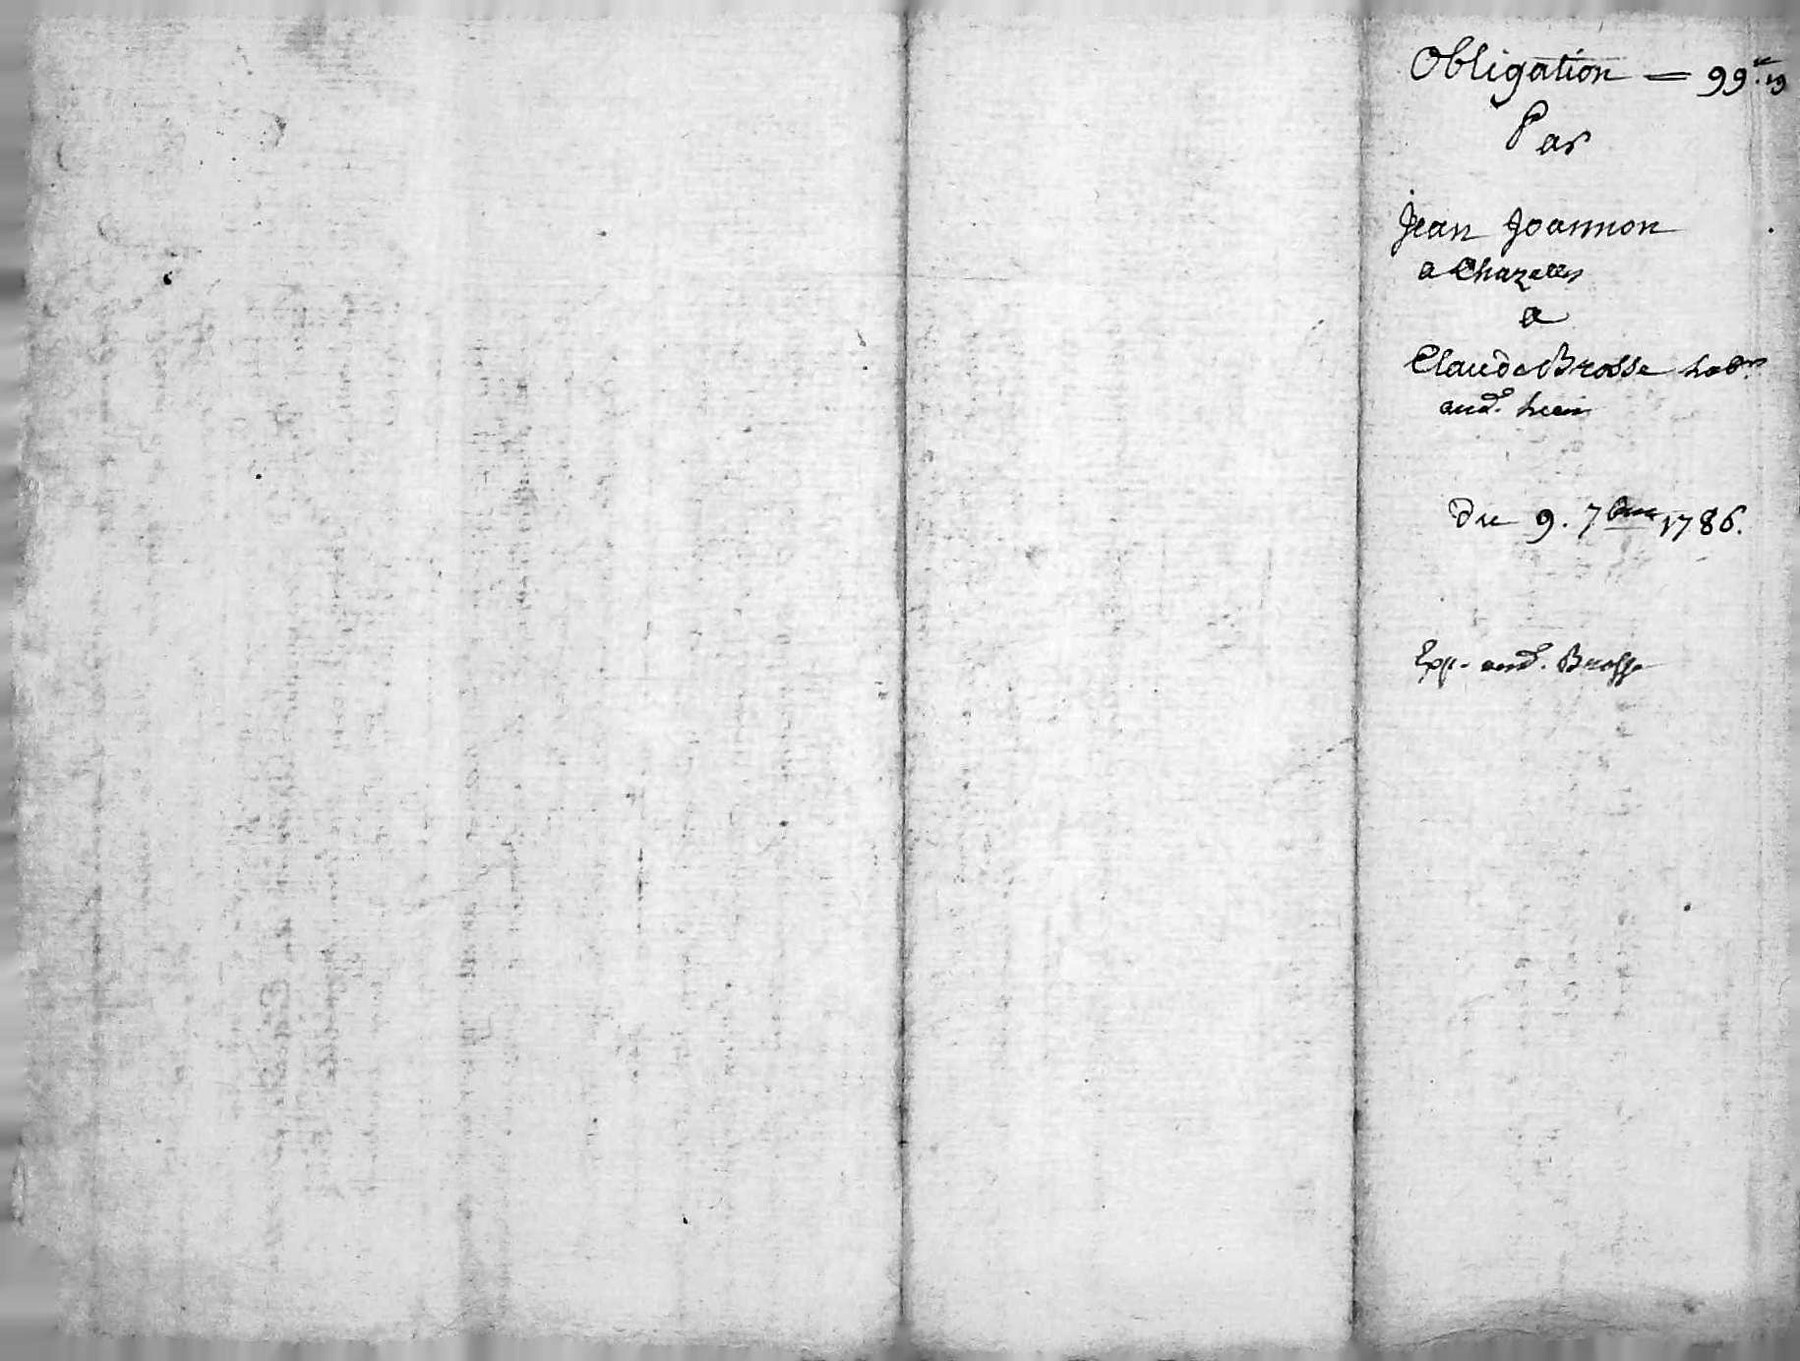 Obligation = 99 ₶. 19
Par
Jean Joannon
a Chazelles
a
Claude Brosse hab.
aud.
du 9. 7bre 1786.
Exp. aud. Brosse